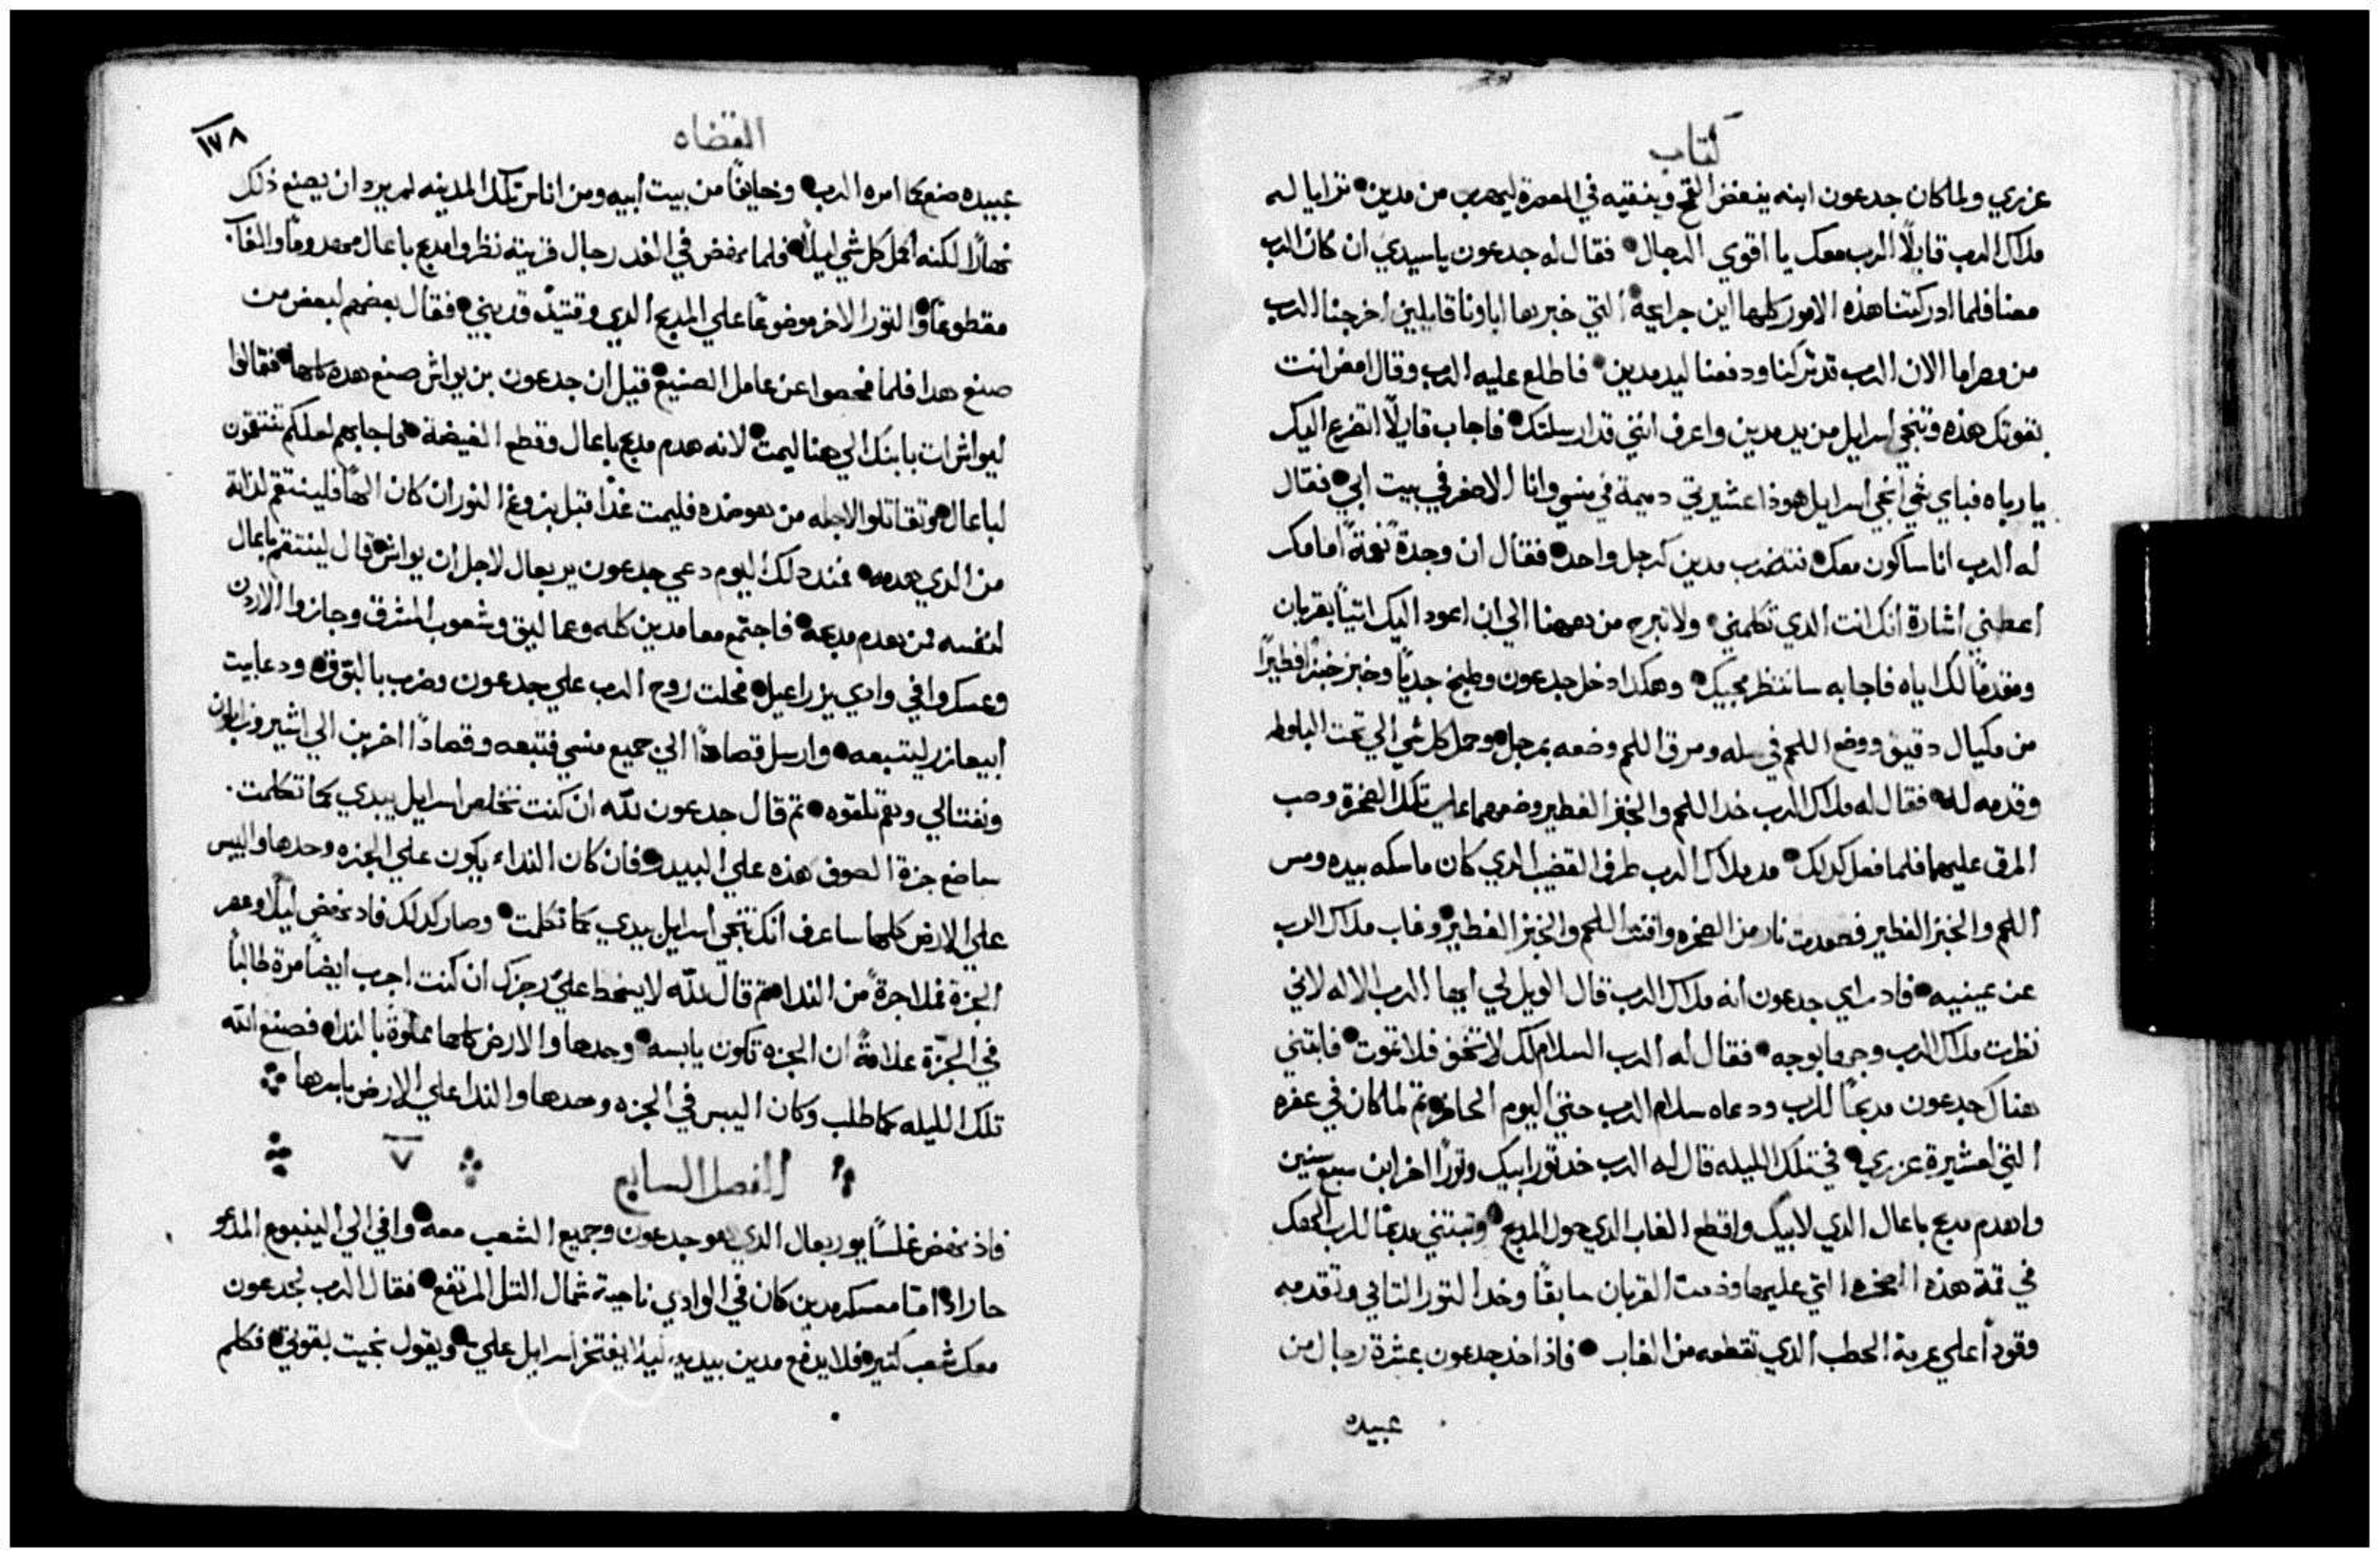 كتاب
عزري ولما كان جدعون ابنه ينفض القمح وينقيه في المعصرة ليهرب من مدين • ترايا له
ملاك الرب قايلاً الرب معك يا اقوي الرجال • فقال له جدعون يا سيدي ان كان الرب
معنا فلما ادركتنا هذه الامور كلها اين جرايحه التي خبر بها اباونا قايلين اخرجنا الرب
من مصر اما الان الرب قد تركنا ودفعنا ليد مدين • فاطلع عليه الرب وقال امض انت
بقوتك هذه وتنجي اسرايل من يد مدين واعرف انني قد ارسلتك • فاجاب قايلاً اتضرع اليك
يا رباه فباي شي انجي اسرايل هوذا عشيرتي دميمة في منسي وانا الاصغر في بيت ابي • فقال
له الرب انا ساكون معك • فتضرب مدين كرجل واحد • فقال ان وجدة نعمةً امامك
اعطني اشارة انك انت الدي تكلمني • ولا تبرح من هاهنا الي ان اعود اليك اتياً بقربان
ومقدماً لك اياه فاجابه سانتظر مجيك • وهكدا دخل جدعون وطبخ جدياً وخبز خبزاً فطيراً
من مكيال دقيق ووضع اللحم في سله ومرق اللحم وضعه بمرجل • وحمل كل شي الي تحت البلوطه
وقدمه له • فقال له ملاك الرب خد اللحم والخبز الفطير وضعهما علي تلك الصخرة وصب
المرق عليهما فلما فعل كدلك • مد ملاك الرب طرف القضيب الدي كان ماسكه بيده ومس
اللحم والخبز الفطير فصعدت نار من الصخره وافنت اللحم والخبز الفطير • وغاب ملاك الرب
عن عينيه • فاد راي جدعون انه ملاك الرب قال الويل لي ايها الرب الاله لاني
نظرت ملاك الرب وجهاً بوجه • فقال له الرب السلام لك لا تخف فلا تموت • فابتني
هناك جدعون مدبحاً للرب ودعاه سلام الرب حتي اليوم الحاضر • تم لما كان في عفره
التي لعشيرة عزري • في تلك الليله قال له الرب خد تور ابيك وتوراً اخر ابن سبع سنين
واهدم مدبح باعال الدي لابيك واقطع الغاب الدي حول المدبح • وتبتني مدبحاً للرب الهك
في قمة هذه الصخره التي عليها وضعت القربان سابقاً وخد التور التاني وتقدمه
وقوداً علي عرمة الحطب الدي تقطعه من الغاب • فاذ اخذ جدعون عشرة رجال من
عبيده
القضاه
١٧٨
عبيده صنع كما امره الرب • وخايفاً من بيت ابيه ومن اناس تلك المدينه لم يرد ان يصنع ذلك
نهاراً لكنه اكمل كل شي ليلاً • فلما نهض في الغد رجال قريته نظروا مدبح باعال مهدوماً والغاب
مقطوعاً • والتور الاخر موضوعاً علي المدبح الدي وقتيذ قد بني • فقال بعضهم لبعض من
صنع هدا فلما فحصوا عن عامل الصنيع • قيل ان جدعون بن يواش صنع هده كلها • فقالوا
ليواش ات بابنك الي هنا ليمت • لانه هدم مدبح باعال وقطع الغيضة • فاجابهم لعلكم تنتقمون
لباعال وتقاتلوا لاجله من هو ضده فليمت غداً قبل بزوغ النور ان كان الهاً فلينتقم لداته
من الدي هدمه • فمند دلك اليوم دعي جدعون يربعال لاجل ان يواش قال لينتقم باعال
لنفسه ممن هدم مدبحه • فاجتمع معا مدين كله وعماليق وشعوب المشرق وجازوا الاردن
وعسكروا في وادي يزراعيل • فحلت روح الرب علي جدعون وضرب بالبوق • ودعا بيت
ابيعازر ليتبعه • وارسل قصاداً الي جميع منسي فتبعه وقصاداً اخرين الي اشير وزابلون
ونفتالي وهم تلقوه • تم قال جدعون لله ان كنت تخلص اسرايل بيدي كما تكلمت •
ساضع جزة الصوف هذه علي البيدر • فان كان النداء يكون علي الجزه وحدها واليبس
علي الارض كلها ساعرف انك تنجي اسرايل بيدي كما تكلمت • وصار كدلك فاد نهض ليلاً وعصر
الجزة فملا جرةً من الندا • تم قال لله لا يسخط علي رجزك ان كنت اجرب ايضاً مرة طالباً
في الجزّة علامةً ان الجزه تكون يابسه • وحدها والارض كلها مملوة بالندا • فصنع الله
تلك الليله كما طلب وكان اليبس في الجزه وحدها والندا علي الارض باسرها
الفصل السابع ٧
فاذ نهض غلساً يوربعال الدي هو جدعون وجميع الشعب معه • وافي الي الينبوع المدعو
حاراد • امّا معسكر مدين كان في الوادي ناحية شمال التل المرتفع • فقال الرب لجدعون
معك شعب كتير • فلا يدفع مدين بيديه ليلا يفتخر اسرايل علي • ويقول نجيت بقوتي • فكلم